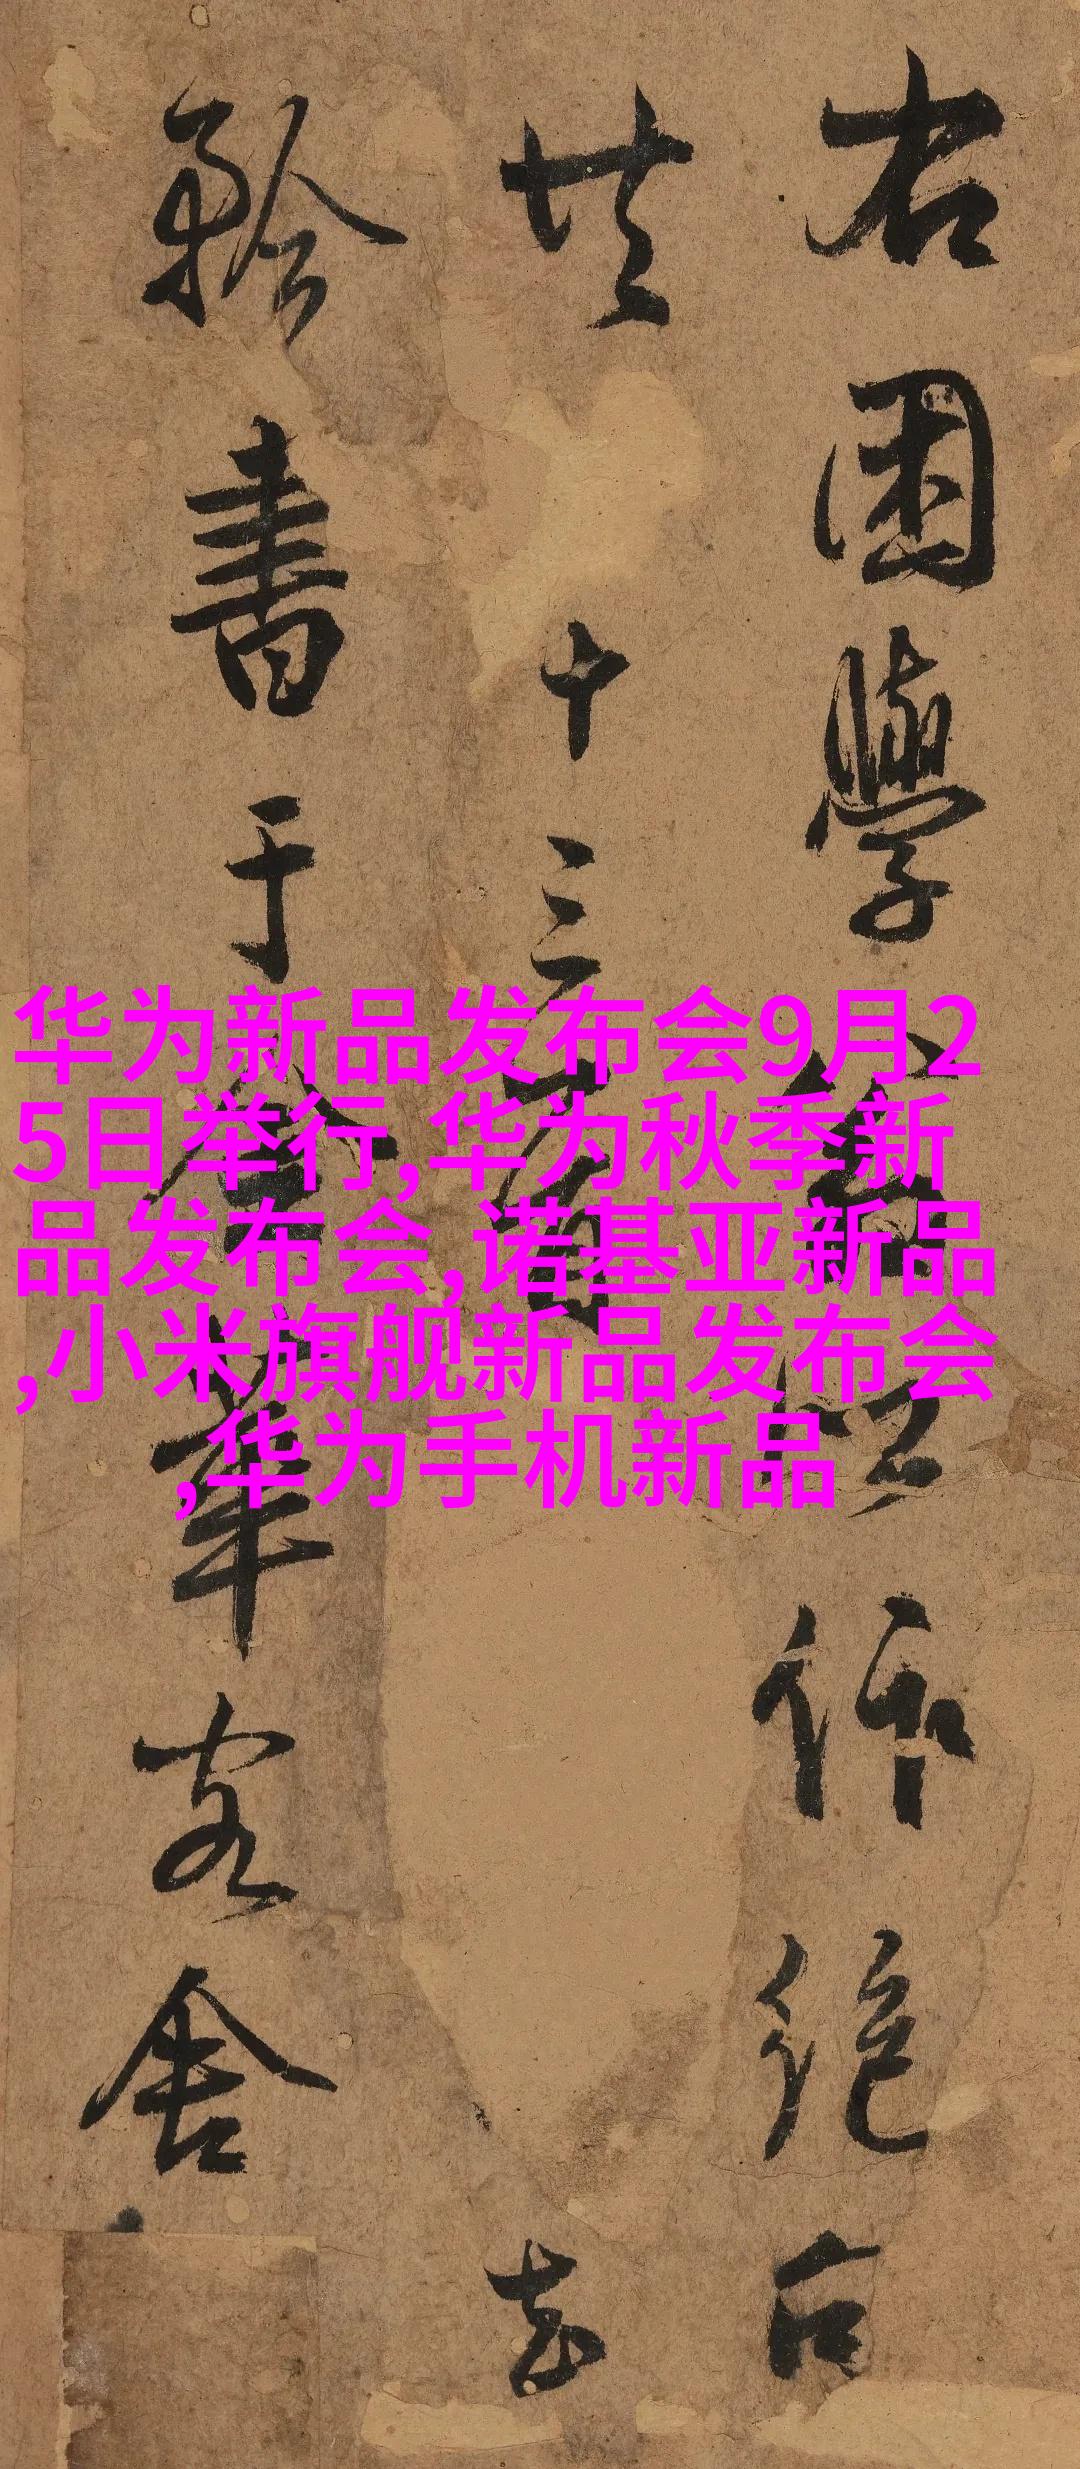 右困學作絕句
共十三首
書于金華客舍
华为新品发布会9月2
5日举行,华为秋季新
品发布会,诺基亚新品
,小米旗舰新品发布会
,华为手机新品